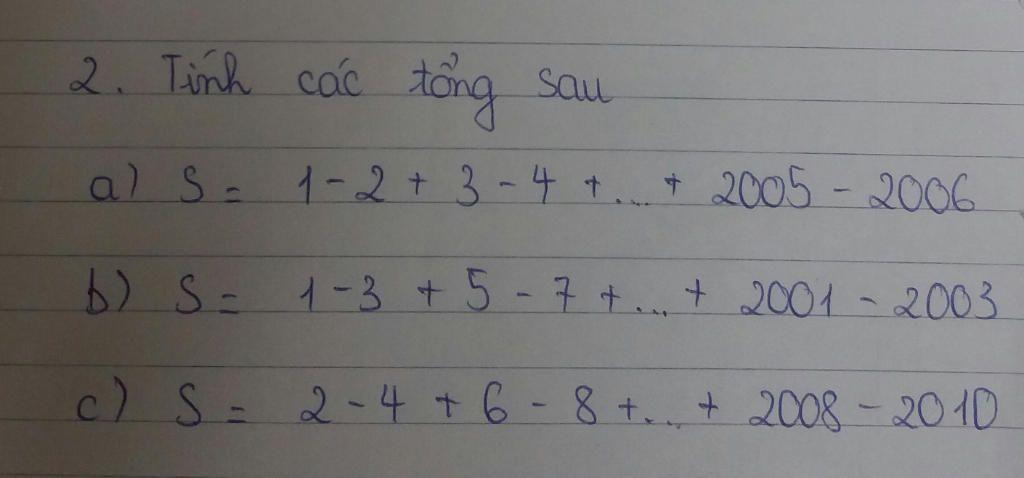 2. Tính các tổng sau
a) S = 1 - 2 + 3 - 4 + ... + 2005 - 2006
b) S = 1 - 3 + 5 - 7 + ... + 2001 - 2003
c) S = 2 - 4 + 6 - 8 + ... + 2008 - 2010